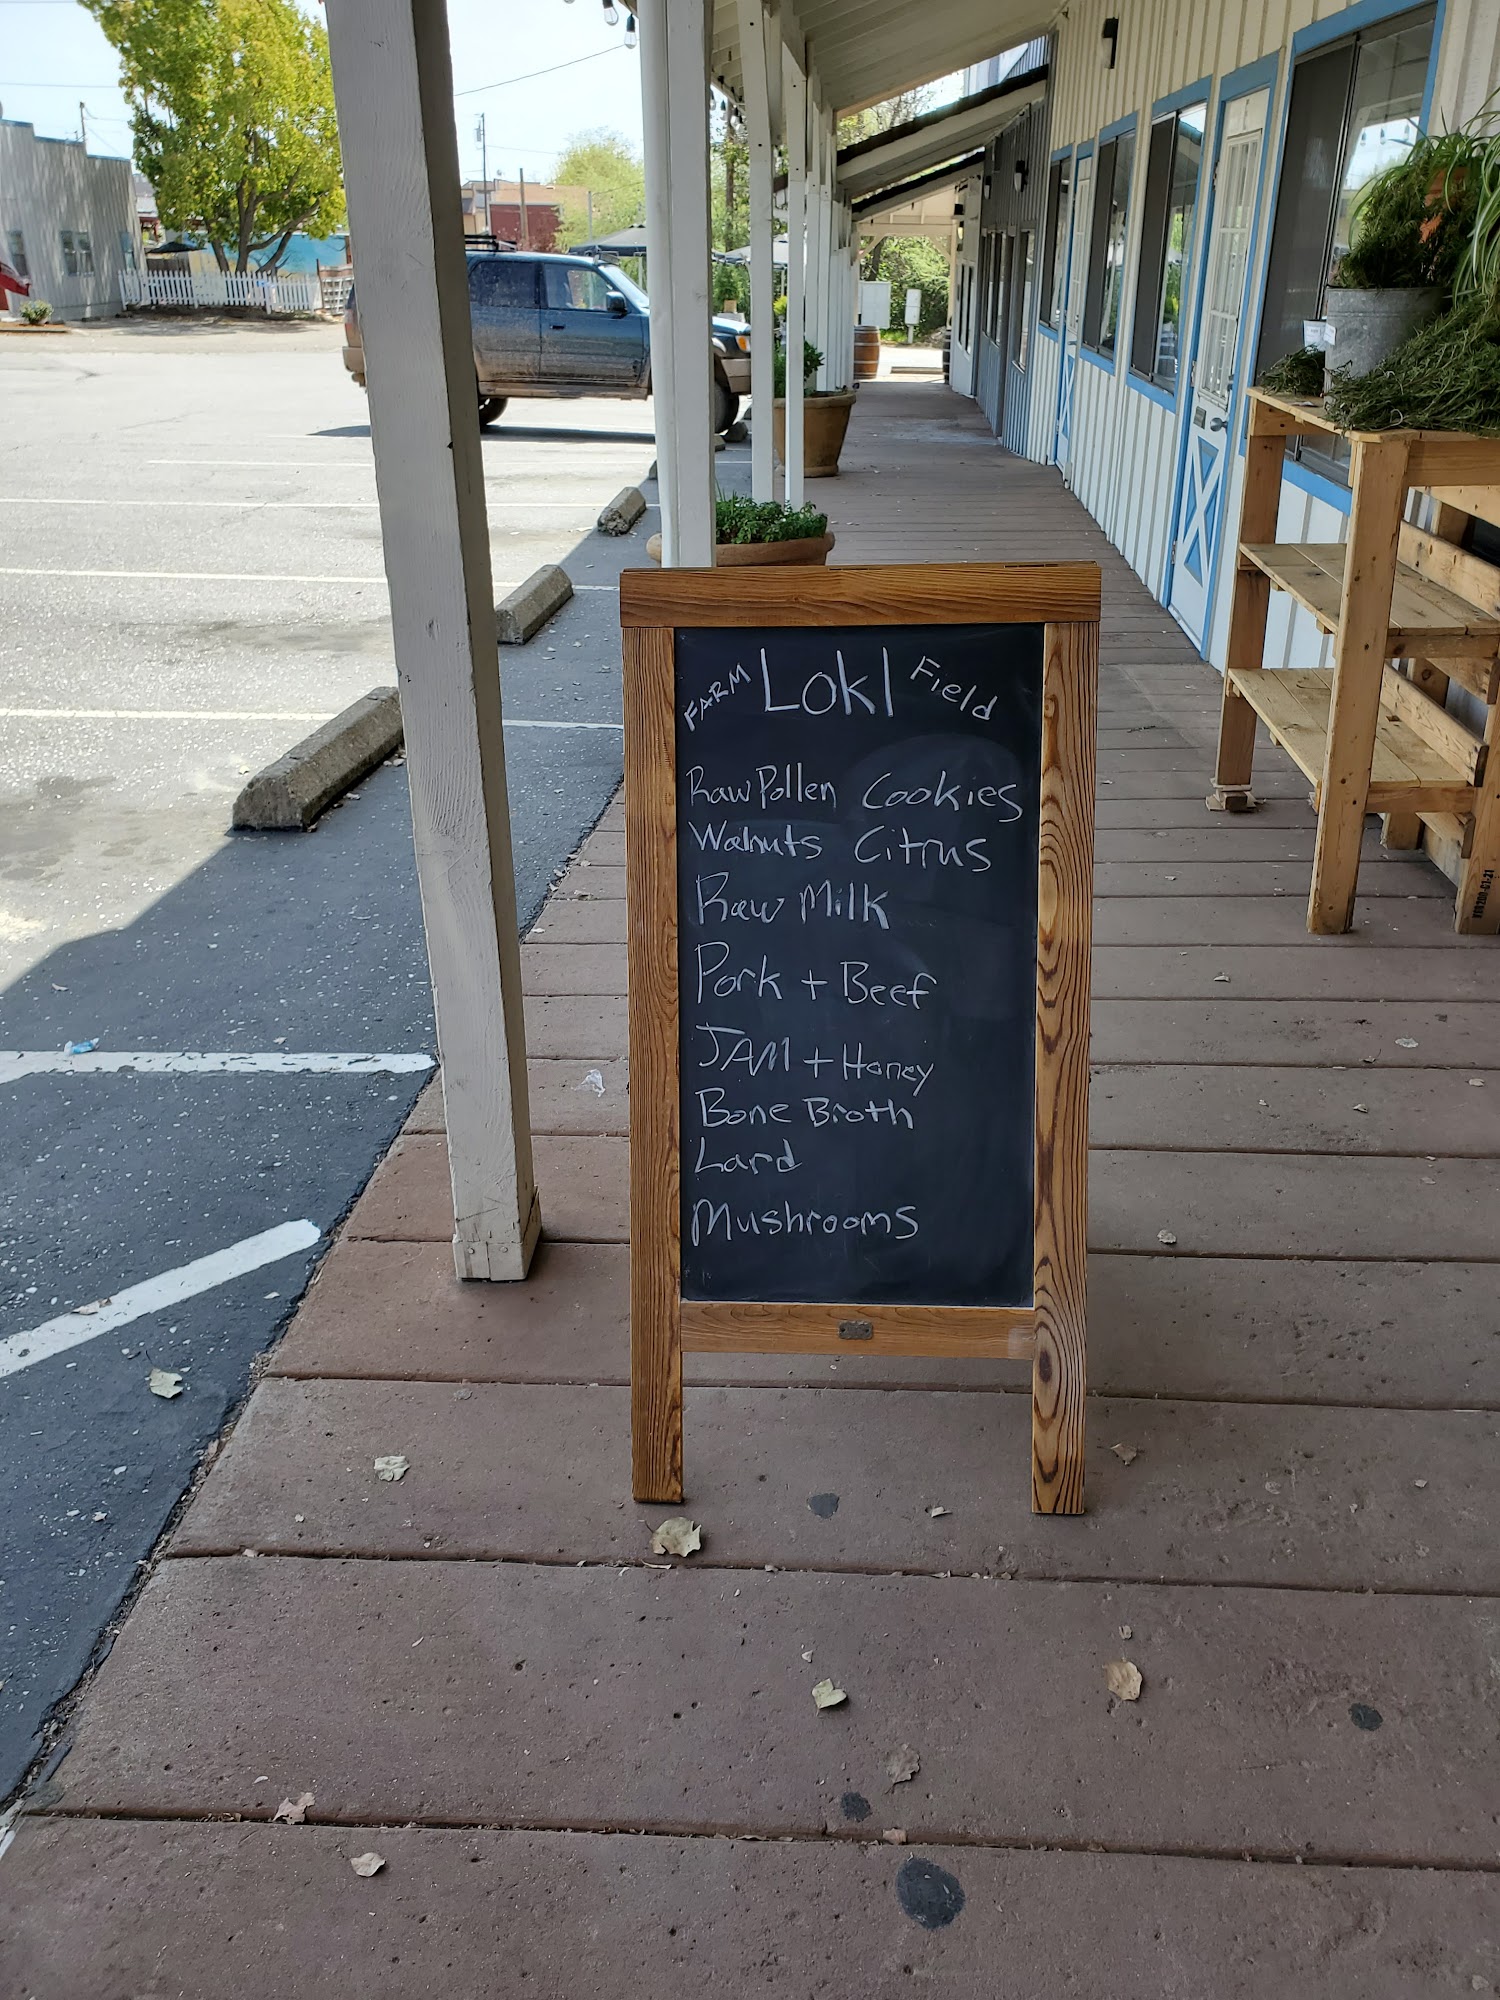 FARM LOKI Field
Raw Pollen Cookies
Walnuts Citrus
Raw Milk
Pork + Beef
JAM + Honey
Bone Broth
Lard
Mushrooms